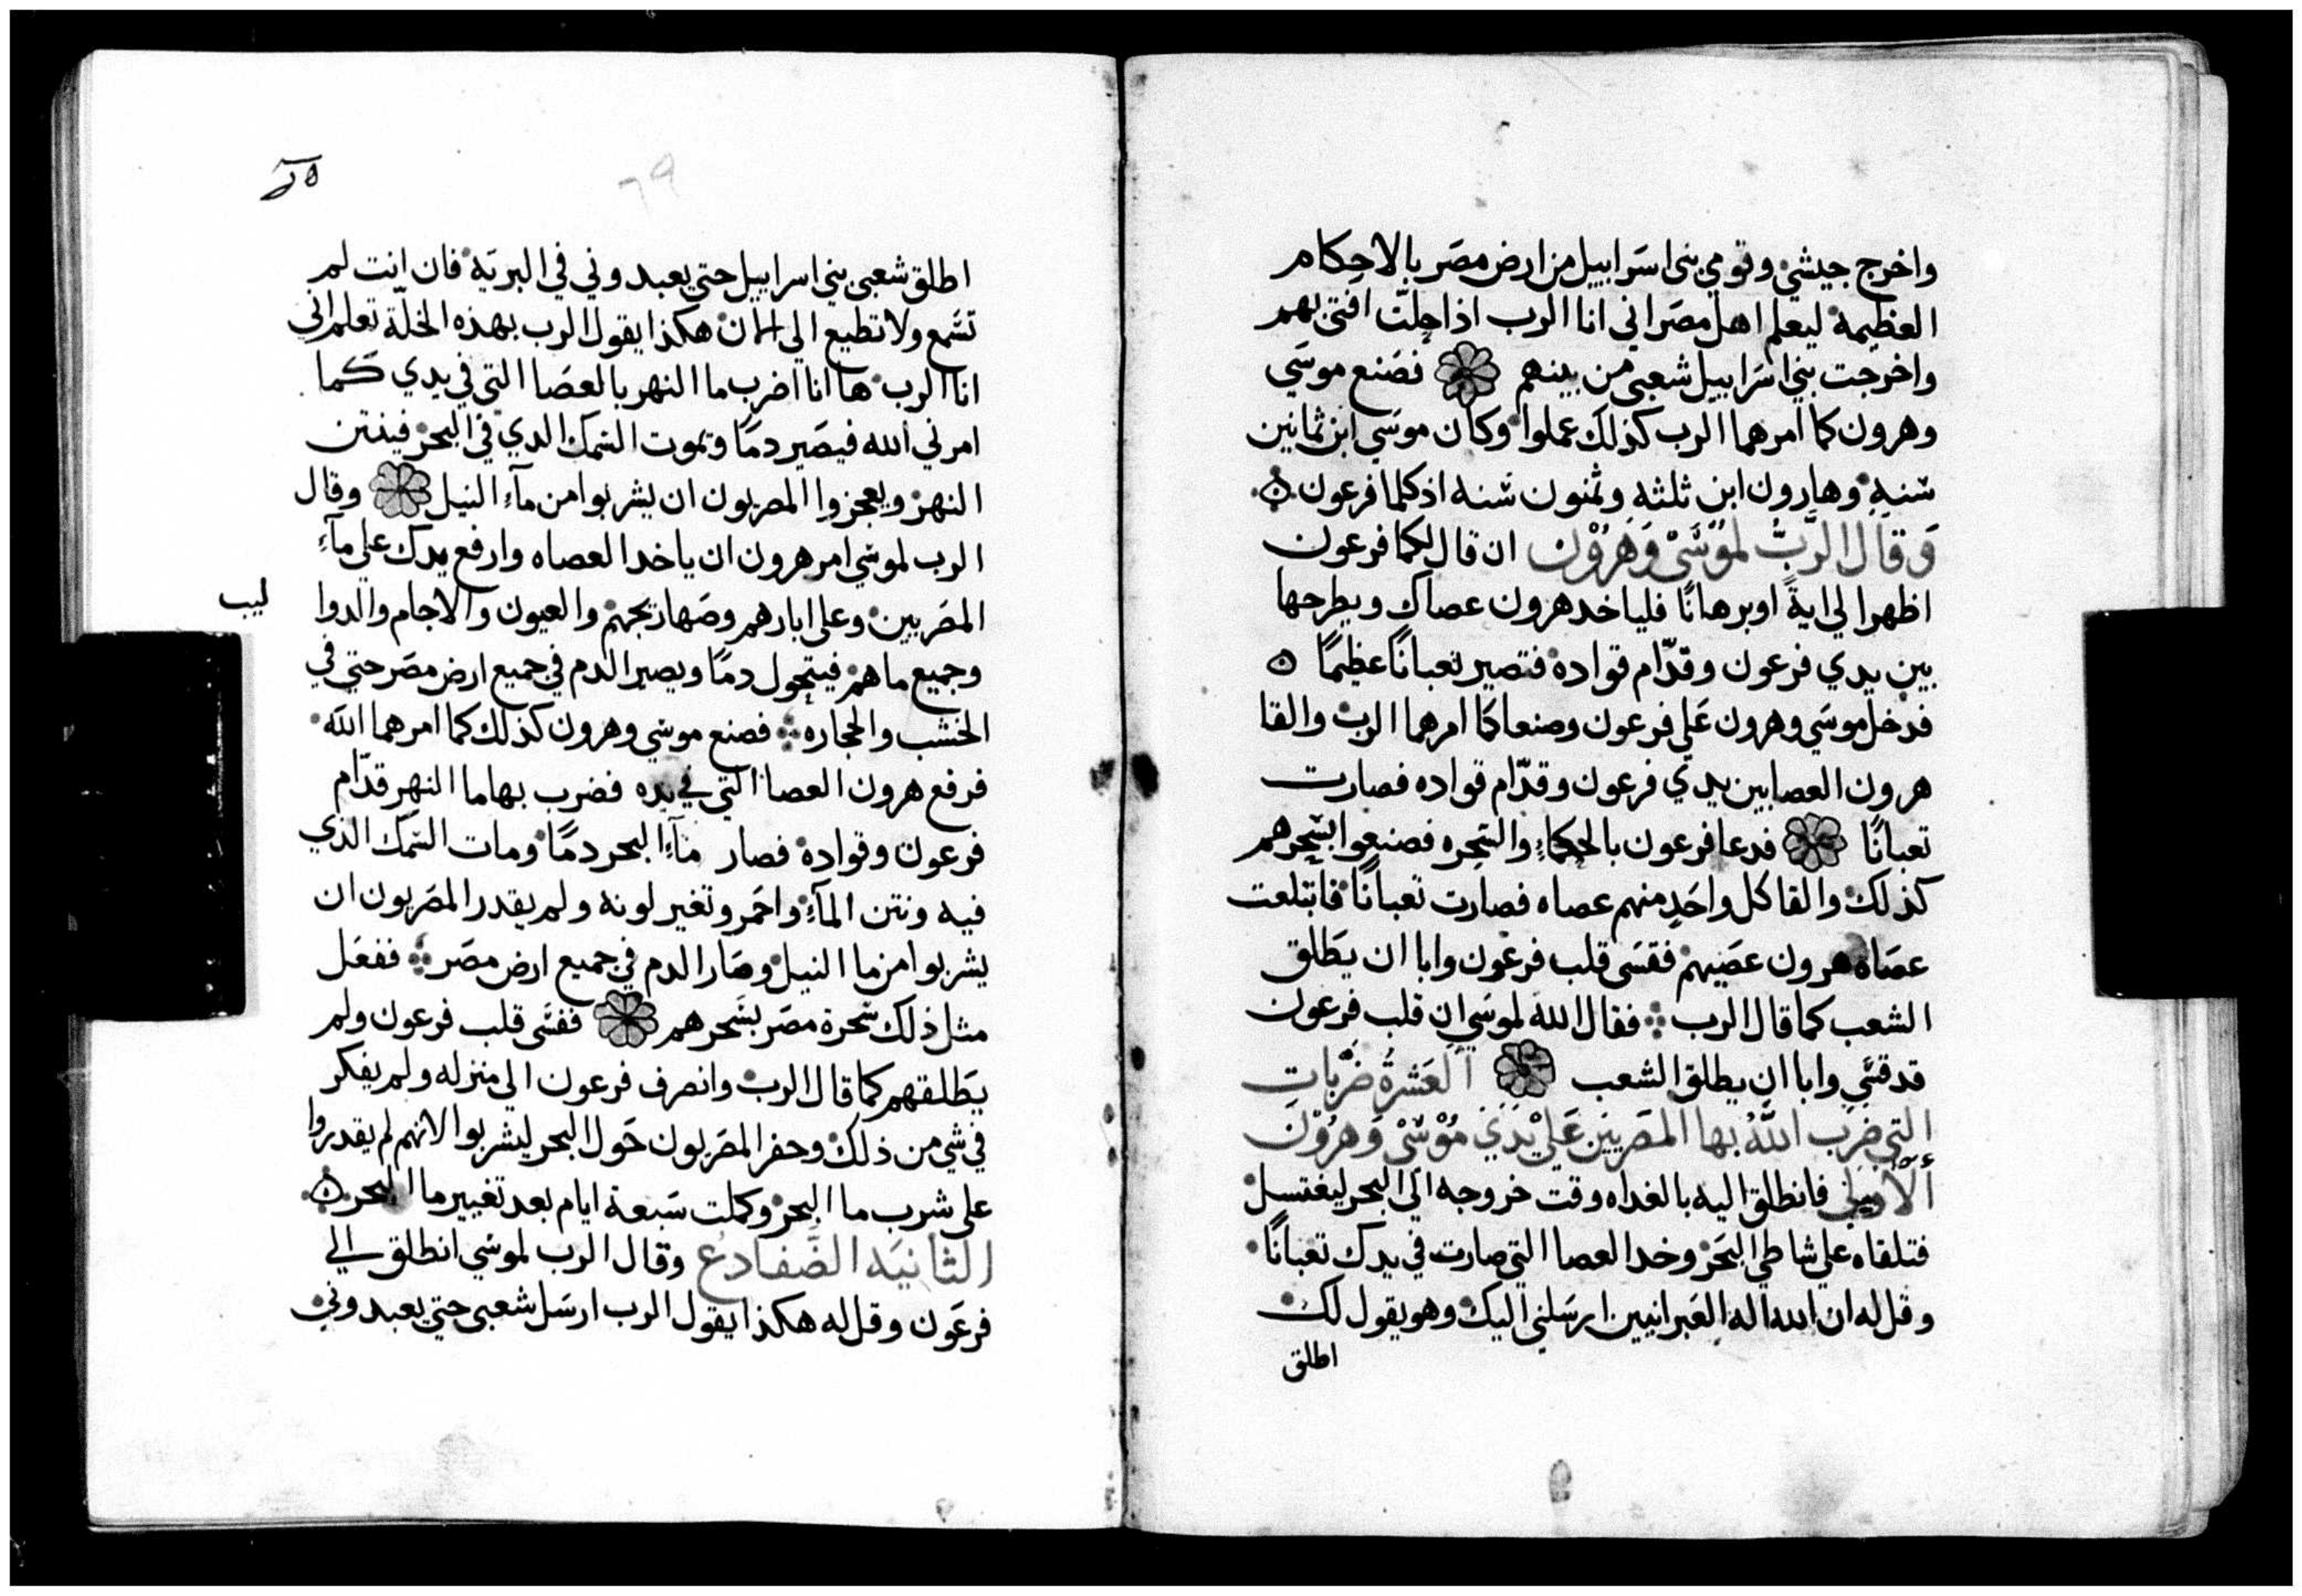 واخرج جيشي وقومي بني اسَراييل من ارض مصَر بالاحكام
العظيمة ليعلم اهل مصَر اني انا الرب اذا حلّت افتي بهم
واخرجت بني اسَراييل شعبي من بينهم فصَنع موسَي
وهرون كما امرهما الرب كذلك عملوا وكان موسَي ابن ثمانين
سَنه وهارون ابن ثلثه وثمنون سَنه اذ كلما فرعون
وَقَالَ الرَّبُّ لمُوْسَىْ وَهرُوْن ان قال لكما فرعون
اظهرا لي ايةً او برهانًا فلياخد هرون عصاك ويطرحها
بين يدي فرعون وقدّام قواده فتصير تعبانًا عظيمًا
فدخل موسَي وهرون عَلي فرعون وصنعا كما امرهما الرب والقا
هرون العصا بين يدي فرعون وقدّام قواده فصارت
تعبانًا فدعا فرعون بالحكماءِ والسَحره فصنعوا بسَحرهم
كذلك والقا كل واحَدٍ منهم عصاه فصارت تعبانًا فابتلعت
عصَاة هرون عصَيهم فقسَى قلب فرعون وابا ان يطَلق
الشعب كما قال الرب فقال الله لموسَي ان قلب فرعون
قد قسَي وابا ان يطلق الشعب اَلعَشرةُ ضَرَّبات
التي ضرب اللَّهُ بها المصَريين عَليْ يَدَيْ مُوْسَىْ وَهرُوْنَ
اَلْاوْلي فانطلق اليه بالغداه وقت خروجه الي البحر ليغتسل
فتلقاه علي شاطي البَحر وخد العصا التي صارت في يدك تعبانًا
وقل له ان الله اله العَبرانيين ارسَلني اليك وهو يقول لك
اطلق
٦٩
اطلق شعبي بني اسراييل حتي يعبدوني في البريَة فان انت لم
تسَمع ولا تطيع الي الان هكذا يقول الرب بهذه الخلّة تعلم اني
انا الرب ها انا اضرب ما النهر بالعصَا التي في يدي كما
امرني الله فيصَير دمًا وتموت السَمك الدي في البحر فينتن
النهر ويعجزوا المصريون ان يشربوا من مآءِ النيل وقال
الرب لموسَي امر هرون ان ياخدا لعصاه وارفع يدك علي مآءِ
المصَريين وعلي ابارهم وصَهاريجهم والعيون والاجام والدوا
ليب
وجميع ماهم فيتحول دمًا ويصير الدم في جميع ارض مصَر حتي في
الخشب والحجاره فصنع موسَي وهرون كذلك كما امرهما الله
فرفع هرون العصا التي في يده فضرب بها ما النهر قدّام
فرعون وقواده فصار مآءِ البحر دمًا ومات السَمك الذي
فيه ونتن المآءِ واحَمر وتغير لونه ولم يقدر المصَريون ان
يشربوا من ما النيل وصَار الدم في جميع ارض مصَر ففعَل
مثل ذلك سَحرة مصَر بسَحرهم فقسَى قلب فرعون ولم
يَطلقهم كما قال الرب وانصرف فرعون الي منزله ولم يفكر
في شي من ذلك وحفر المصَريون حَول البحر ليشربوا لانهم لم يقدروا
علي شرب ما البحر وكملت سَبعة ايام بعد تغيير ما البحر
الثانيَه الضَفادعُ وقال الرب لموسَي انطلق الي
فرعَون وقل له هكذا يقول الرب ارسَل شعبي حتي يعبدوني